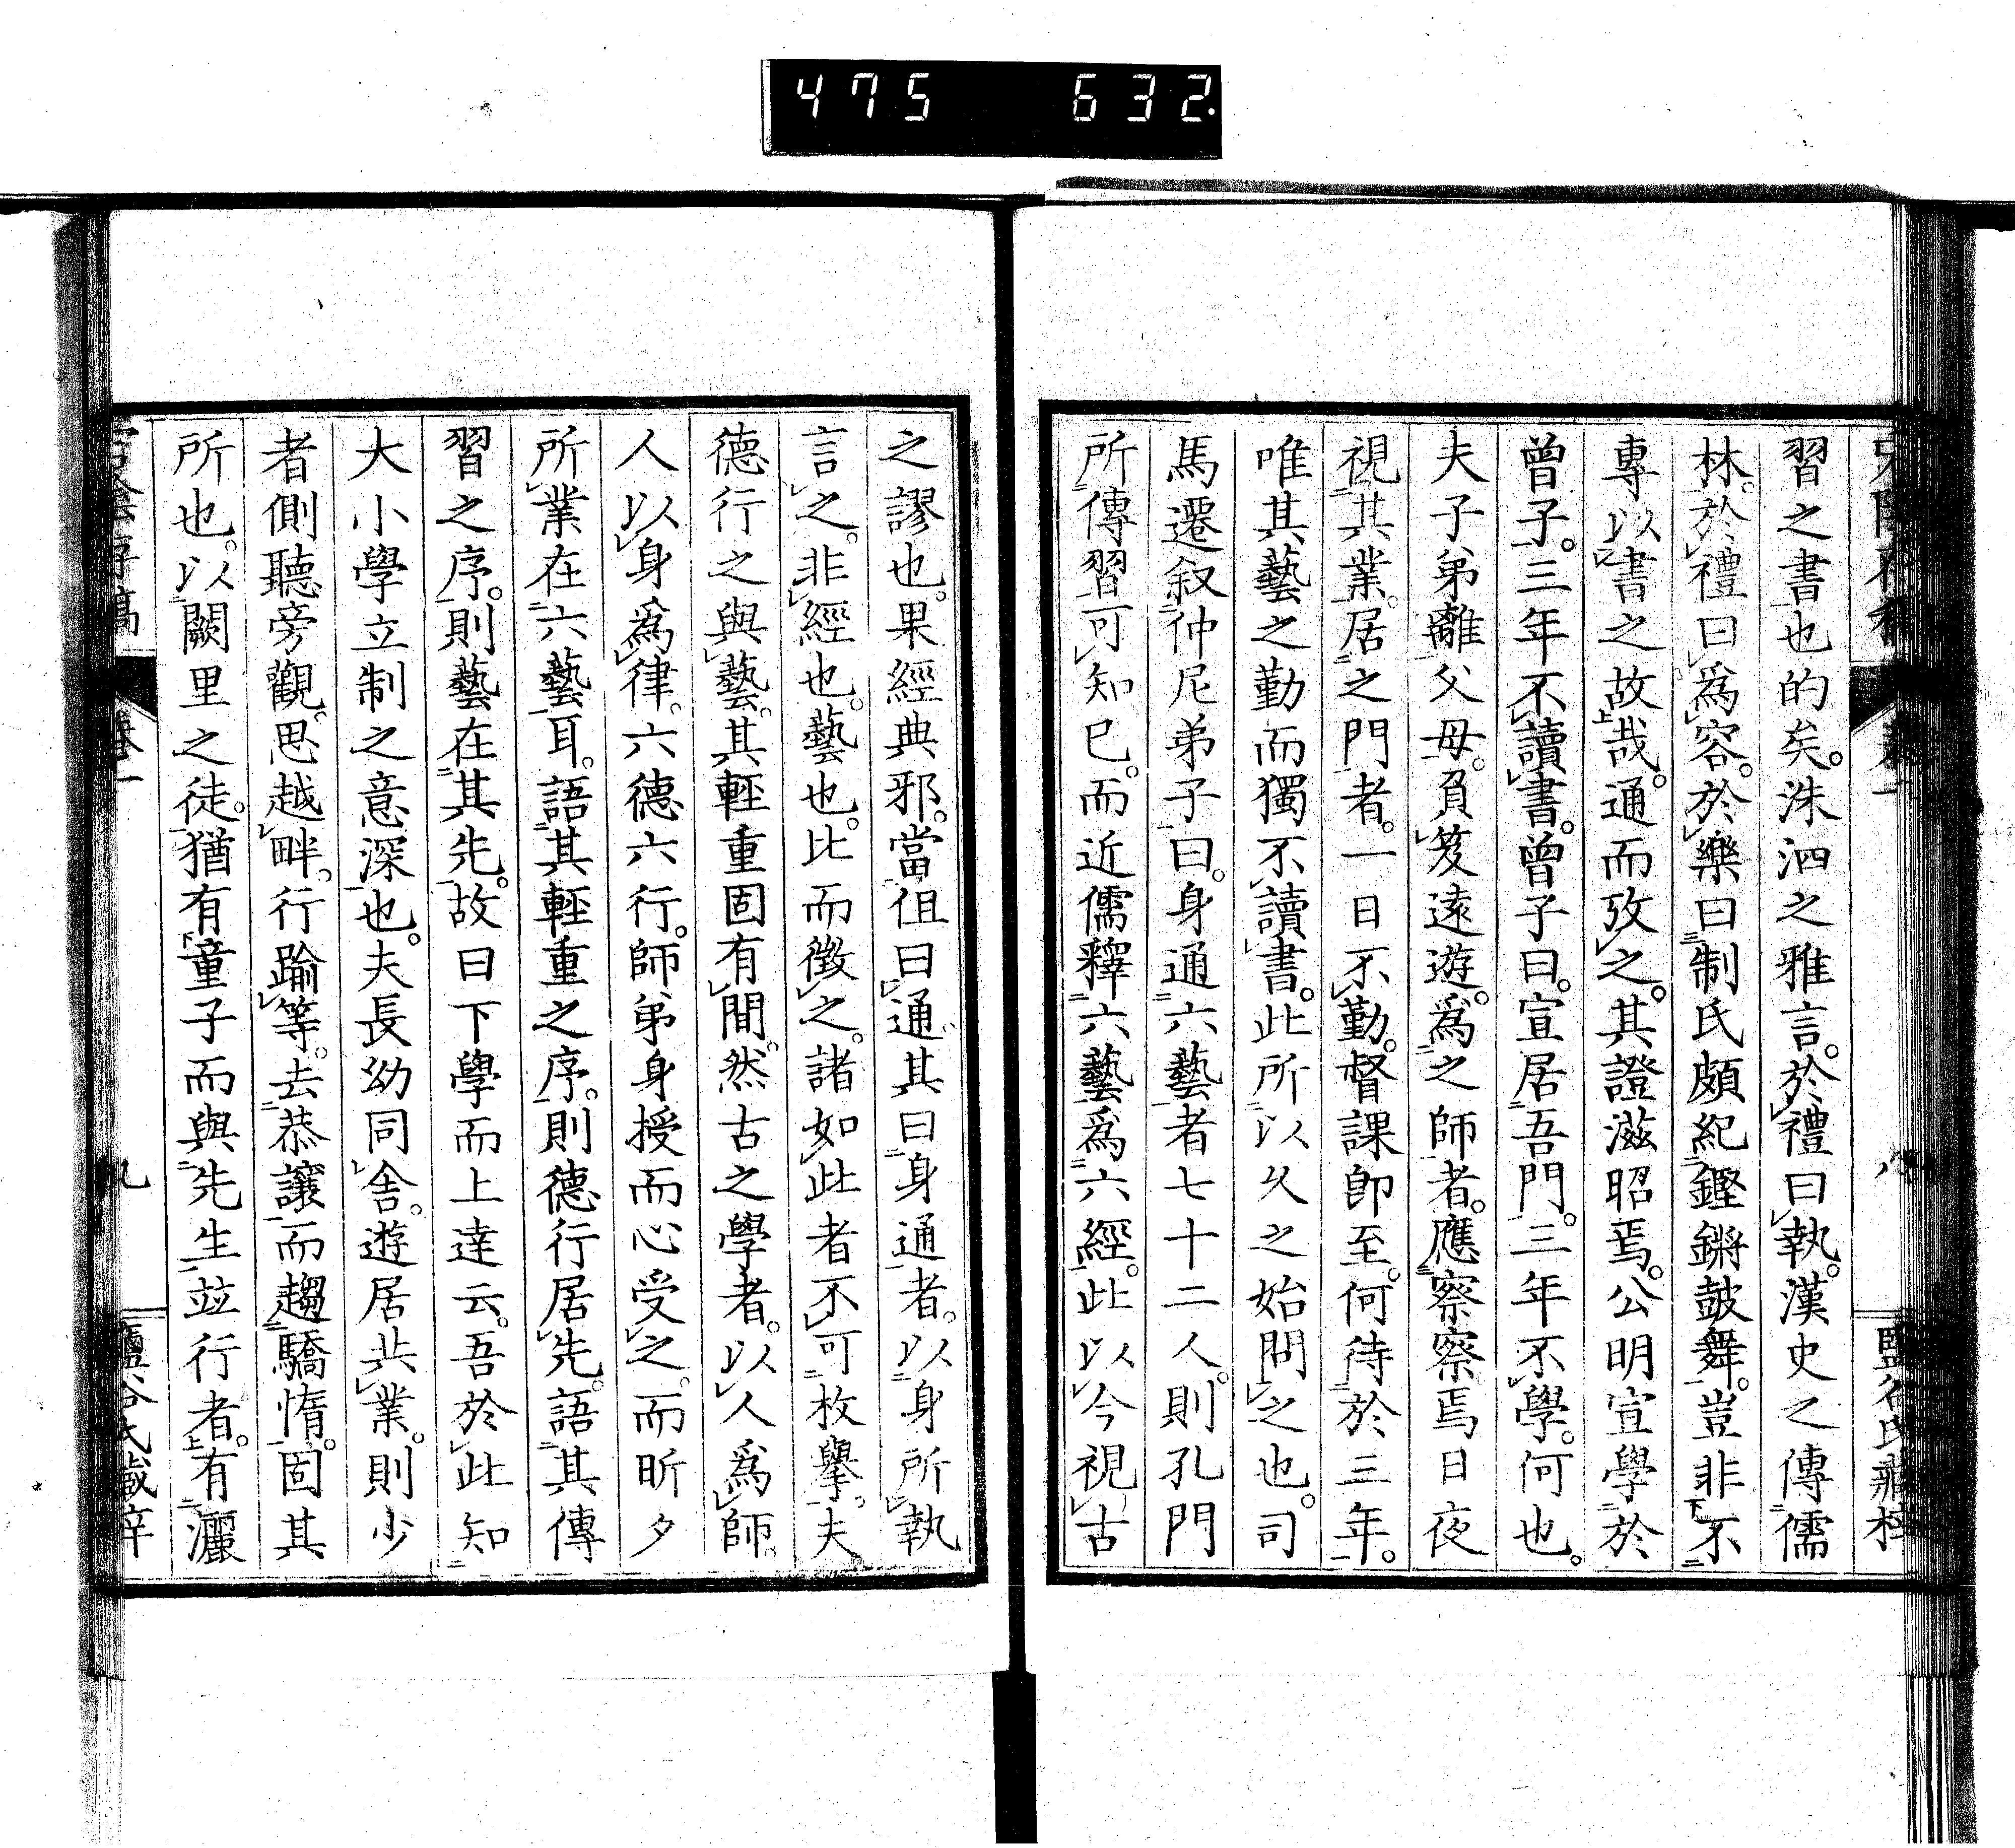 475 632.
習之書也的矣。洙泗之雅言。於禮曰執。漢史之傳儒
林。於禮曰爲容。於樂曰制氏頗紀鏗鏘皷舞。豈非不
專以書之故哉。通而攷之。其證滋昭焉。公明宣學於
曾子。三年不讀書。曾子曰。宣居吾門。三年不學。何也。
夫子弟離父母。負笈遠遊。爲之師者。應察察焉日夜
視其業。居之門者。一日不勤。督課即至。何待於三年。
唯其藝之勤而獨不讀書。此所以久之始問之也。司
馬遷叙仲尼弟子曰。身通六藝者七十二人。則孔門
所傳習可知已。而近儒釋六藝爲六經。此以今視古
之謬也。果經典邪。當但曰通其曰身通者。以身所執
言之。非經也。藝也。比而徵之。諸如此者不可枚擧。夫
德行之與藝。其輕重固有間。然古之學者。以人爲師。
人以身爲律。六德六行。師弟身授而心受之。而昕夕
所業在六藝耳。語其輕重之序。則德行居先。語其傳
習之序。則藝在其先。故曰下學而上達云。吾於此知
大小學立制之意深也。夫長幼同舍。遊居共業。則少
者側聽旁觀。思越畔。行踰等。去恭讓而趨驕惰。固其
所也。以闕里之徒。猶有童子而與先生並行者。有灑
卷一
九